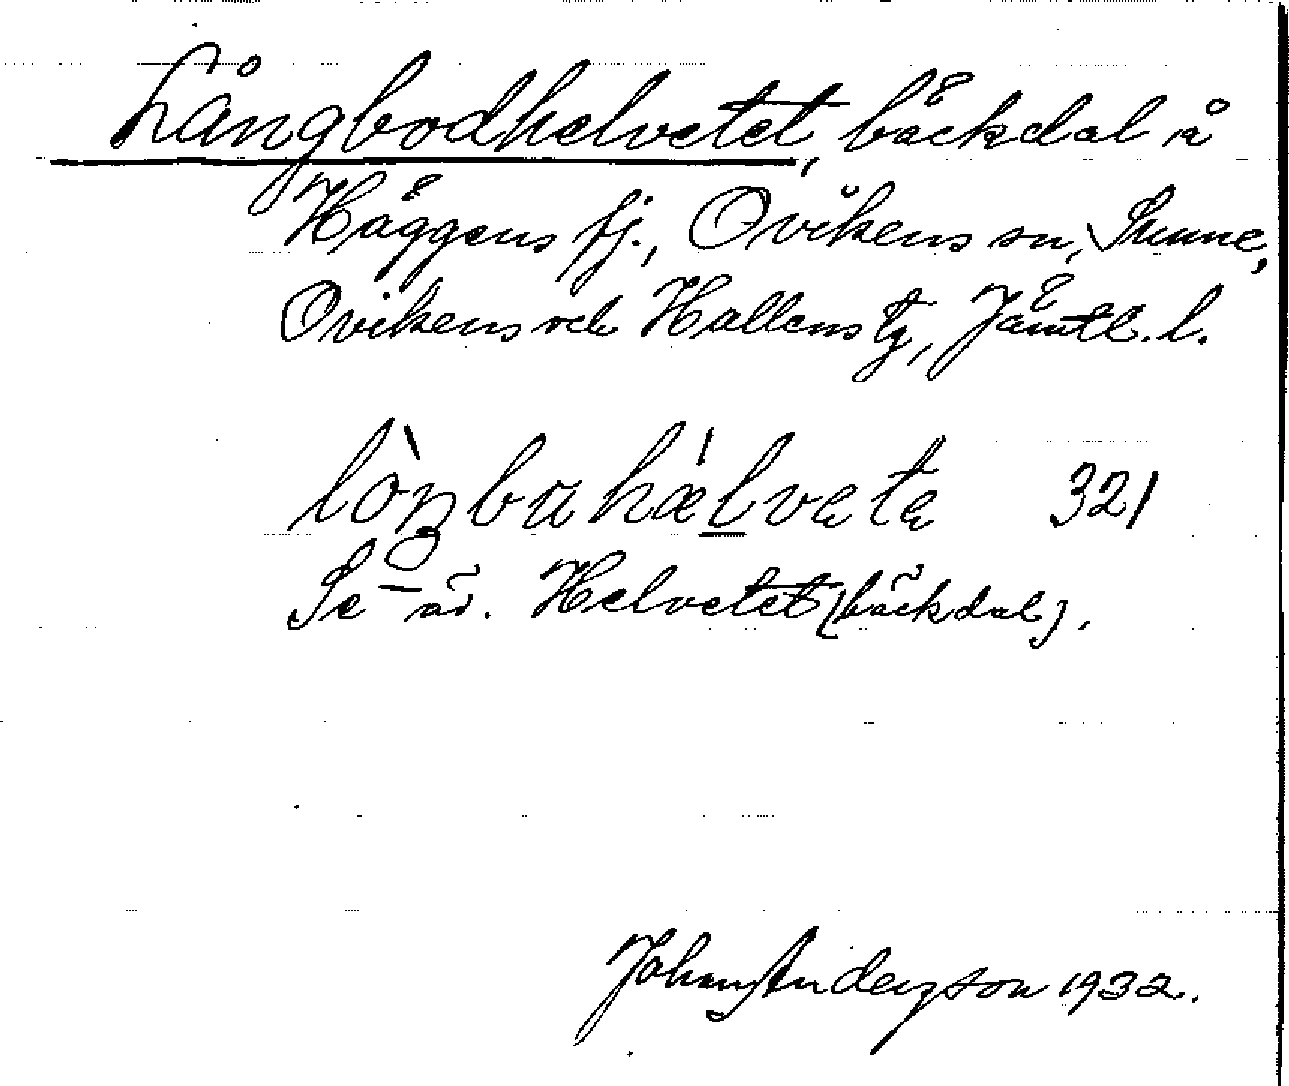 Långbodhelvetet, bäckdal å
Häggens fj., Ovikens sn, Sunne,
Ovikens och Hallens tg, Jämtl. l.
321
Se äv. Helvetet (bäckdal).
Johan Anderzson 1932.